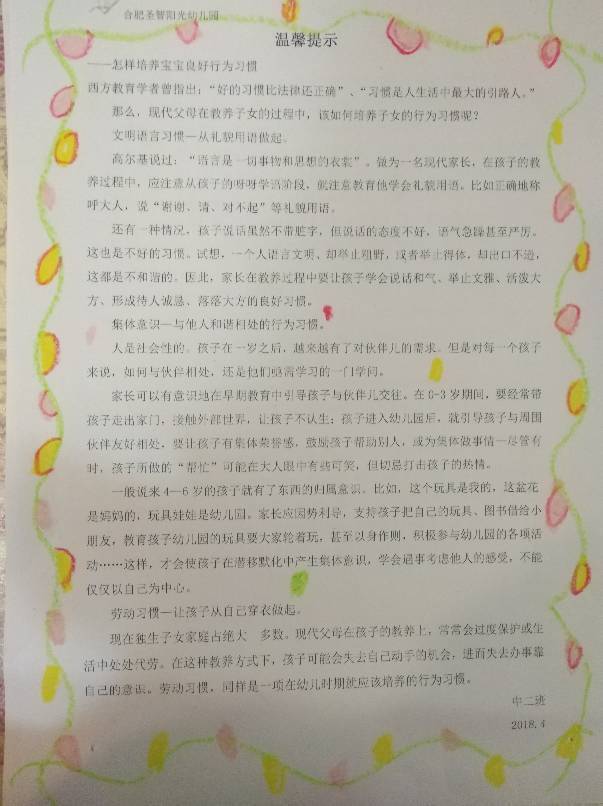 合肥圣智阳光幼儿园
温馨提示
——怎样培养宝宝良好行为习惯
西方教育学者曾指出：“好的习惯比法律还正确”、“习惯是人生活中最大的引路人。”
那么，现代父母在教养子女的过程中，该如何培养子女的行为习惯呢？
文明语言习惯—从礼貌用语做起。
高尔基说过：“语言是一切事物和思想的衣裳”。做为一名现代家长，在孩子的教
养过程中，应注意从孩子的呀呀学语阶段，就注意教育他学会礼貌用语。比如正确地称
呼大人，说“谢谢、请、对不起”等礼貌用语。
还有一种情况，孩子说话虽然不带脏字，但说话的态度不好，语气急躁甚至严厉。
这也是不好的习惯。试想，一个人语言文明、却举止粗野，或者举止得体，却出口不逊，
这都是不和谐的。因此，家长在教养过程中要让孩子学会说话和气、举止文雅、活泼大
方、形成待人诚恳、落落大方的良好习惯。
集体意识—与他人和谐相处的行为习惯。
人是社会性的。孩子在一岁之后，越来越有了对伙伴儿的需求。但是对每一个孩子
来说，如何与伙伴相处，还是他们亟需学习的一门学问。
家长可以有意识地在早期教育中引导孩子与伙伴儿交往。在 0-3 岁期间，要经常带
孩子走出家门，接触外部世界，让孩子不认生；孩子进入幼儿园后，就引导孩子与周围
伙伴友好相处，要让孩子有集体荣誉感，鼓励孩子帮助别人，或为集体做事情—尽管有
时，孩子所做的“帮忙”可能在大人眼中有些可笑，但切忌打击孩子的热情。
一般说来 4—6 岁的孩子就有了东西的归属意识。比如，这个玩具是我的，这盆花
是妈妈的，玩具娃娃是幼儿园。家长应因势利导，支持孩子把自己的玩具、图书借给小
朋友，教育孩子幼儿园的玩具要大家轮着玩，甚至以身作则，积极参与幼儿园的各项活
动……这样，才会使孩子在潜移默化中产生集体意识，学会遇事考虑他人的感受，不能
仅仅以自己为中心。
劳动习惯—让孩子从自己穿衣做起。
现在独生子女家庭占绝大 多数。现代父母在孩子的教养上，常常会过度保护或生
活中处处代劳。在这种教养方式下，孩子可能会失去自己动手的机会，进而失去办事靠
自己的意识。劳动习惯，同样是一项在幼儿时期就应该培养的行为习惯。
中二班
2018.4